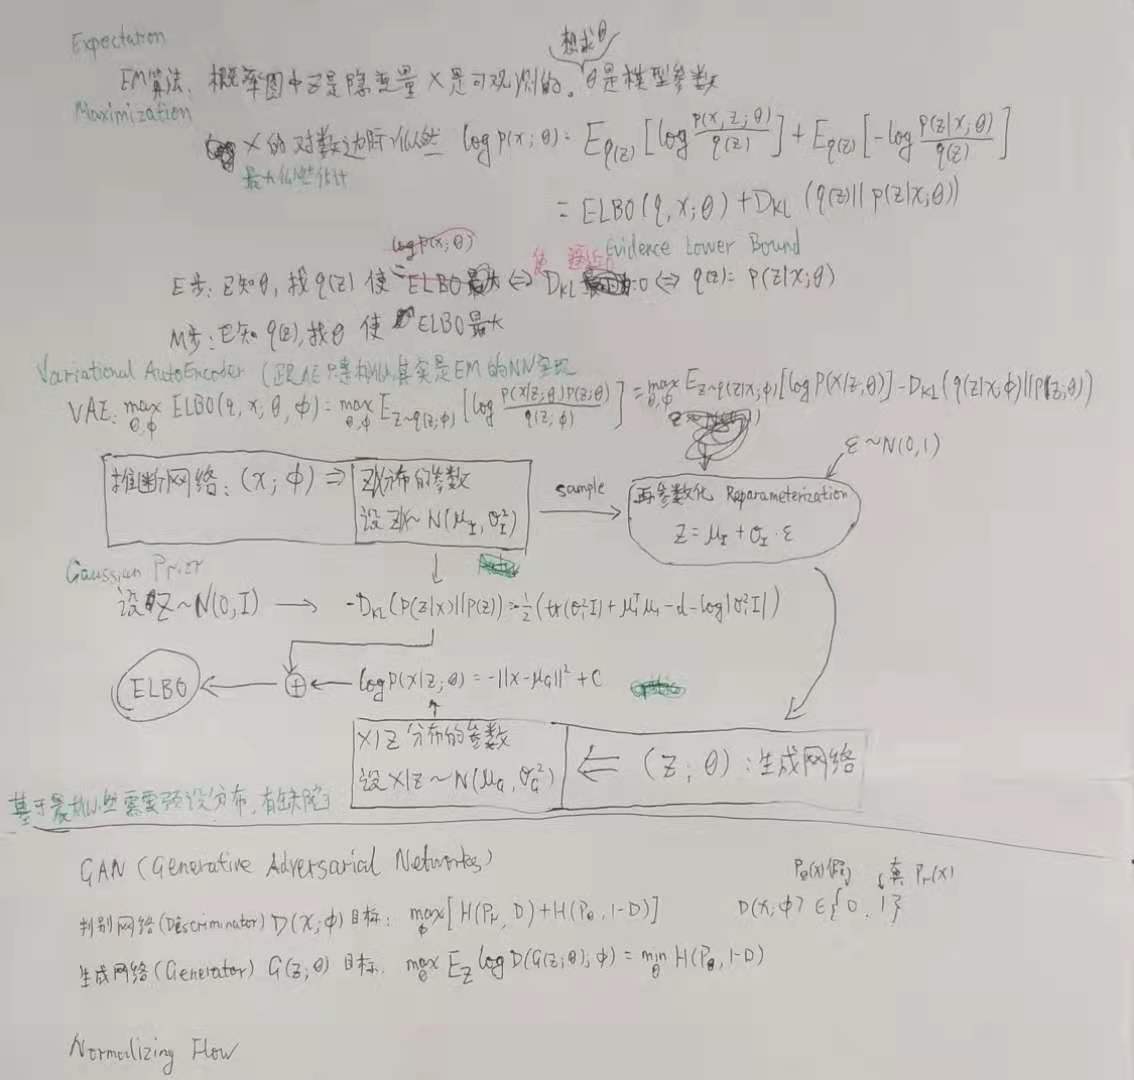 Expectation
想求θ
EM算法: 概率图中Z是隐变量 X是可观测的。θ是模型参数
Maximization
X的对数边际似然 log p(x;θ) = E_{q(z)}[log p(x,z;θ)/q(z)] + E_{q(z)}[-log p(z|x;θ)/q(z)]
最大似然估计
= ELBO(q,x;θ) + D_{KL}(q(z)||p(z|x;θ))
log p(x;θ) Evidence Lower Bound
E步: 已知θ, 找q(z) 使 = ELBO ⇔ 使 D_{KL} 逼近 0 ⇔ q(z) = p(z|x;θ)
M步: 已知q(z), 找θ 使 ELBO最大
Variational AutoEncoder (跟AE只是相似, 其实是EM的NN实现
VAE: max_{θ,ϕ} ELBO(q,x;θ,ϕ) = max_{θ,ϕ} E_{z~q(z;ϕ)}[log p(x|z;θ)p(z;θ)/q(z;ϕ)] = max_{θ,ϕ} E_{z~q(z|x,ϕ)}[log P(x|z,θ)] - D_{KL}(q(z|x,ϕ)||p(z;θ))
ε~N(0,1)
推断网络: (x;ϕ) ⇒ Z|x分布的参数
设Z|x~N(μ_I, σ_I²)
sample
再参数化 Reparameterization
Z = μ_I + σ_I · ε
Gaussian Prior
设Z~N(0,I) → -D_{KL}(P(z|x)||P(z)) = -½(tr(σ_I²I) + μ_I^T μ_I - d - log|σ_I²I|)
ELBO ← ⊕ ← log p(x|z;θ) = -||x-μ_G||² + C
X|Z 分布的参数
设X|Z~N(μ_G, σ_G²) ⇐ (Z;θ): 生成网络
基于最大似然需要预设分布, 有缺陷
GAN (Generative Adversarial Networks)
P_θ(x)假 真 P_r(x)
判别网络(Discriminator) D(x;ϕ) 目标: max_ϕ[H(P_r,D)+H(P_θ,1-D)] D(x;ϕ) ∈ {0, 1}
生成网络(Generator) G(z;θ) 目标: max_θ E_Z log D(G(z;θ);ϕ) = min_θ H(P_θ,1-D)
Normalizing Flow